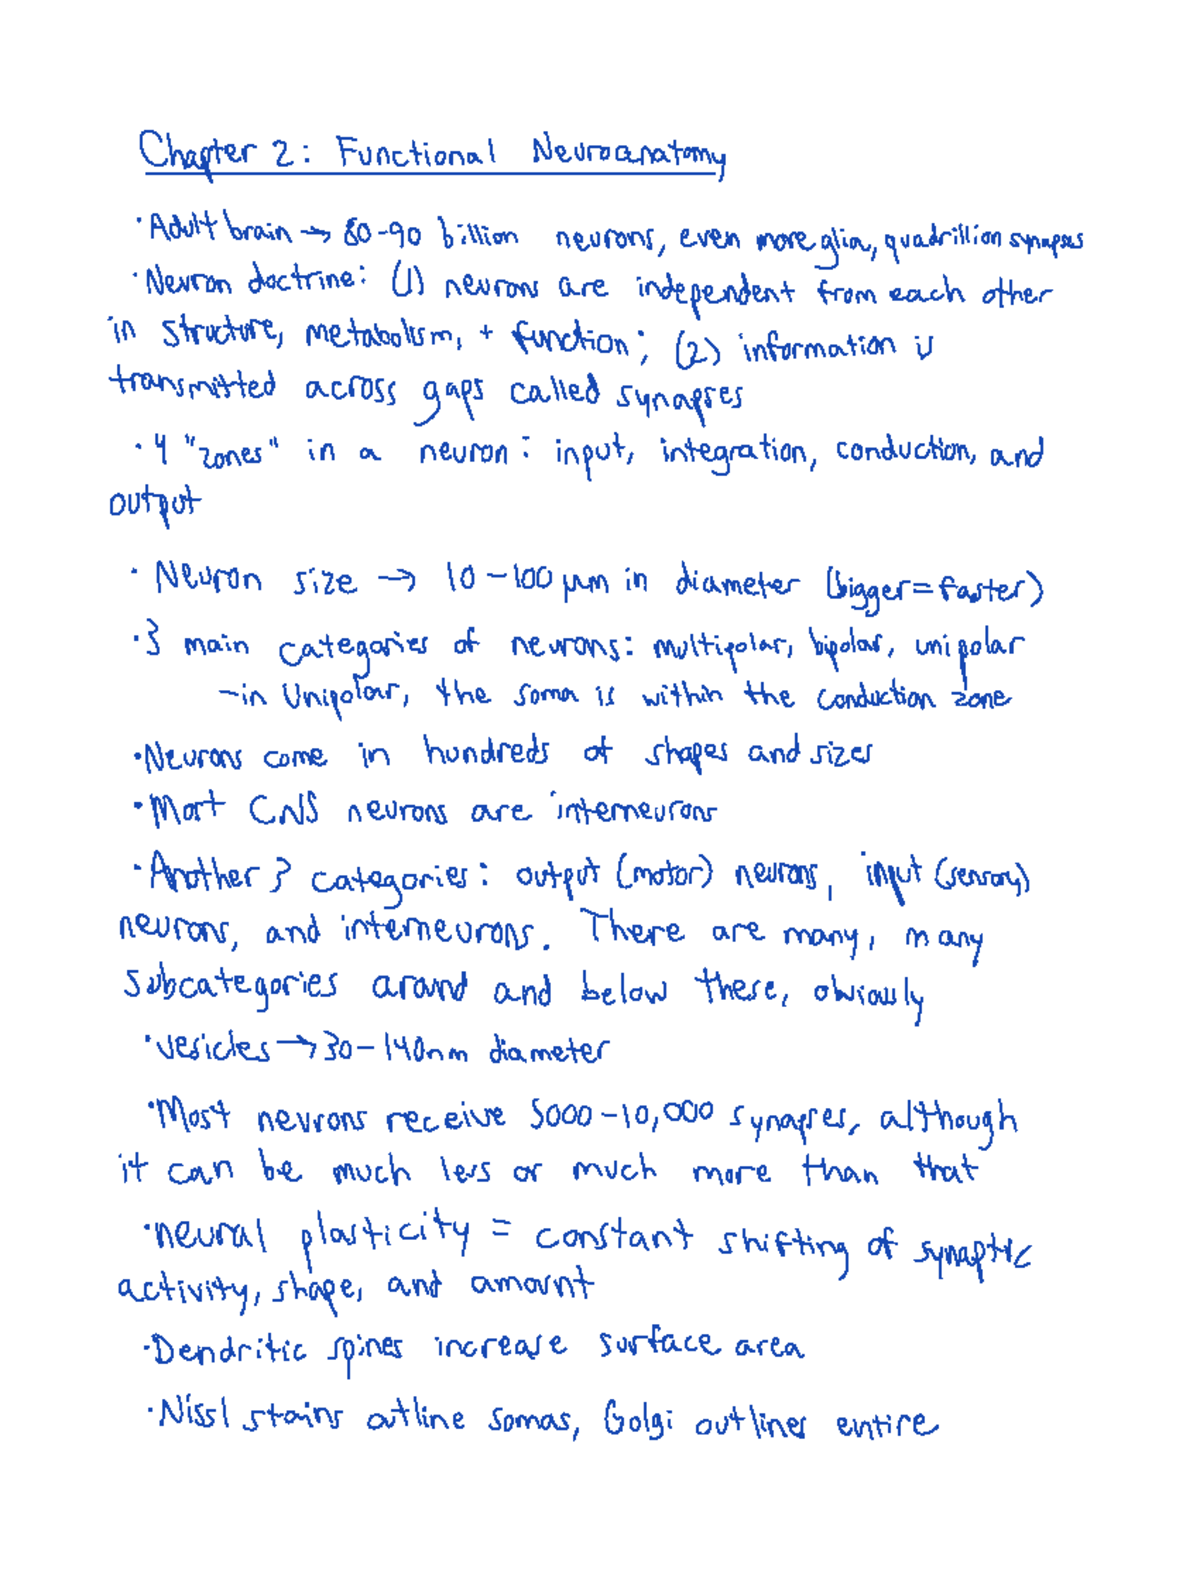 Chapter 2: Functional Neuroanatomy
· Adult brain → 80-90 billion neurons, even more glia, quadrillion synapses
· Neuron doctrine: (1) neurons are independent from each other
in structure, metabolism, + function; (2) information is
transmitted across gaps called synapses
· 4 "zones" in a neuron: input, integration, conduction, and
output
· Neuron size → 10-100 μm in diameter (bigger=faster)
· 3 main categories of neurons: multipolar, bipolar, unipolar
-in Unipolar, the soma is within the conduction zone
· Neurons come in hundreds of shapes and sizes
· Most CNS neurons are interneurons
· Another 3 categories: output (motor) neurons, input (sensory)
neurons, and interneurons. There are many, many
subcategories around and below these, obviously
· vesicles → 30-140nm diameter
· Most neurons receive 5000-10,000 synapses, although
it can be much less or much more than that
· neural plasticity = constant shifting of synaptic
activity, shape, and amount
· Dendritic spines increase surface area
· Nissl stains outline somas, Golgi outlines entire